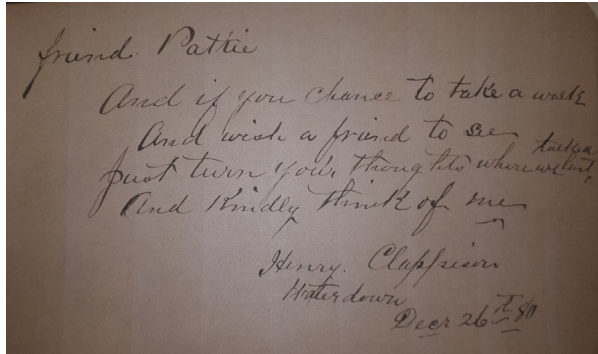 friend Pattie
And if you chance to take a walk
And wish a friend to see
Just turn your thoughts where we last talked
And Kindly think of me
Henry. Clappison
Waterdown
Decr 26th 80